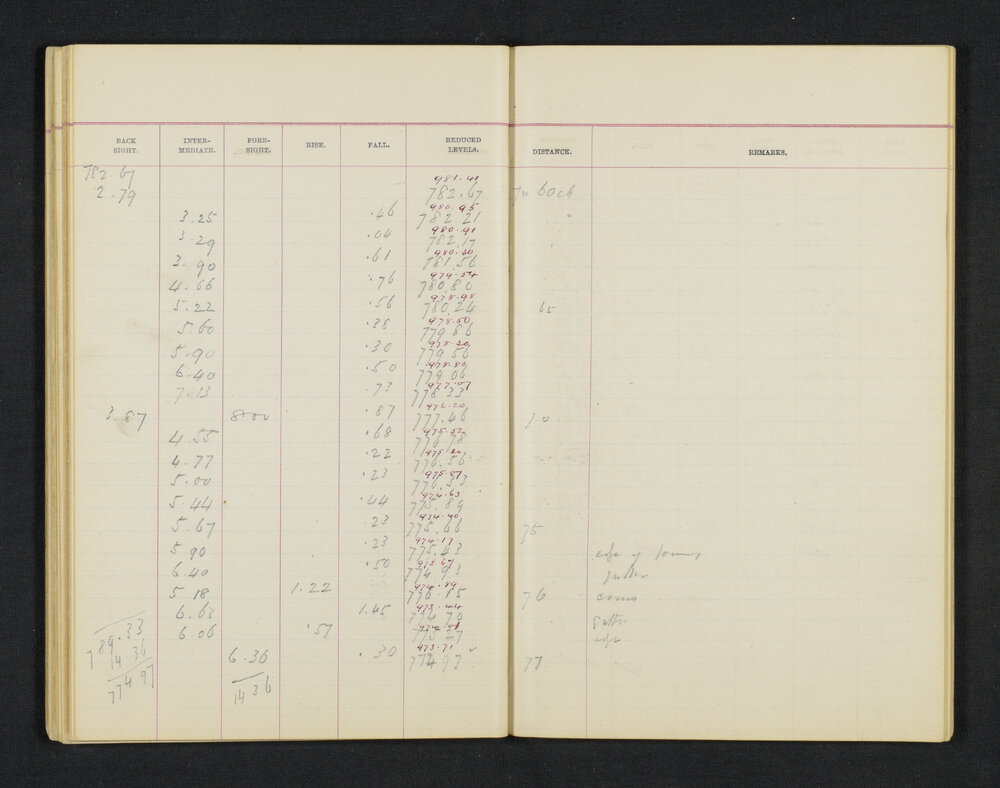 BACK SIGHT. INTER-MEDIATE. FORE-SIGHT. RISE. FALL. REDUCED LEVELS. DISTANCE. REMARKS.
782.67 981.41
2.79 782.67 60ch
980.95
3.25 .46 782.21
980.91
3.29 .04 782.17
980.30
3.90 .61 781.56
979.54
4.66 .76 780.80
978.98
5.22 .56 780.24 65
978.60
5.60 .38 779.86
5.90 .30 779.56
6.40 .50 779.06
7.13 .73 778.33
976.20
3.87 8.00 .87 777.46 70
975.52
4.55 .68 776.78
4.77 .22 776.56
975.07
5.00 .23 776.33
974.63
5.44 .44 775.89
974.40
5.67 .23 775.66 75
974.17
5.90 .23 775.43
973.67
6.40 .50 774.93
974.89
5.18 1.22 776.15 76
973.44
6.63 1.45 774.70
6.06 .57 775.27
973.71
6.36 .30 774.97 77
789.33
14 36
774 97
14 36